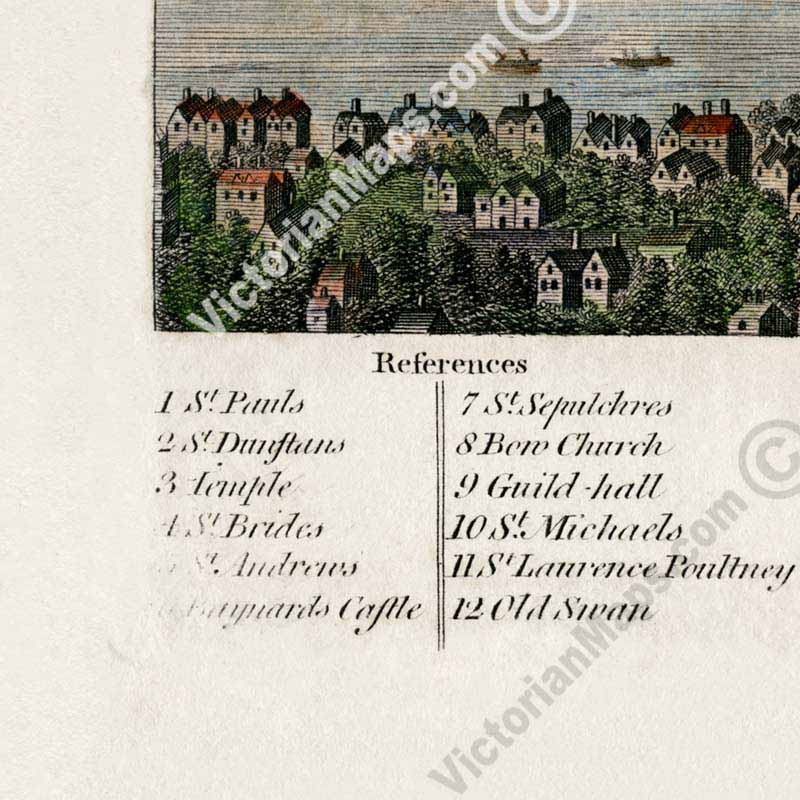 VictorianMaps.com ©
References
1 St. Pauls
2 St. Dunſtans
3 Temple
4 St. Brides
5 St. Andrews
6 Baynards Caſtle
7 St. Sepulchres
8 Bow Church
9 Guild-hall
10 St. Michaels
11 St. Laurence Poultney
12 Old Swan
VictorianMaps.com ©